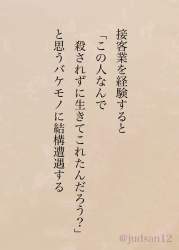 接客業を経験すると
「この人なんで
殺されずに生きてこれたんだろう？」
と思うバケモノに結構遭遇する
@judsan12